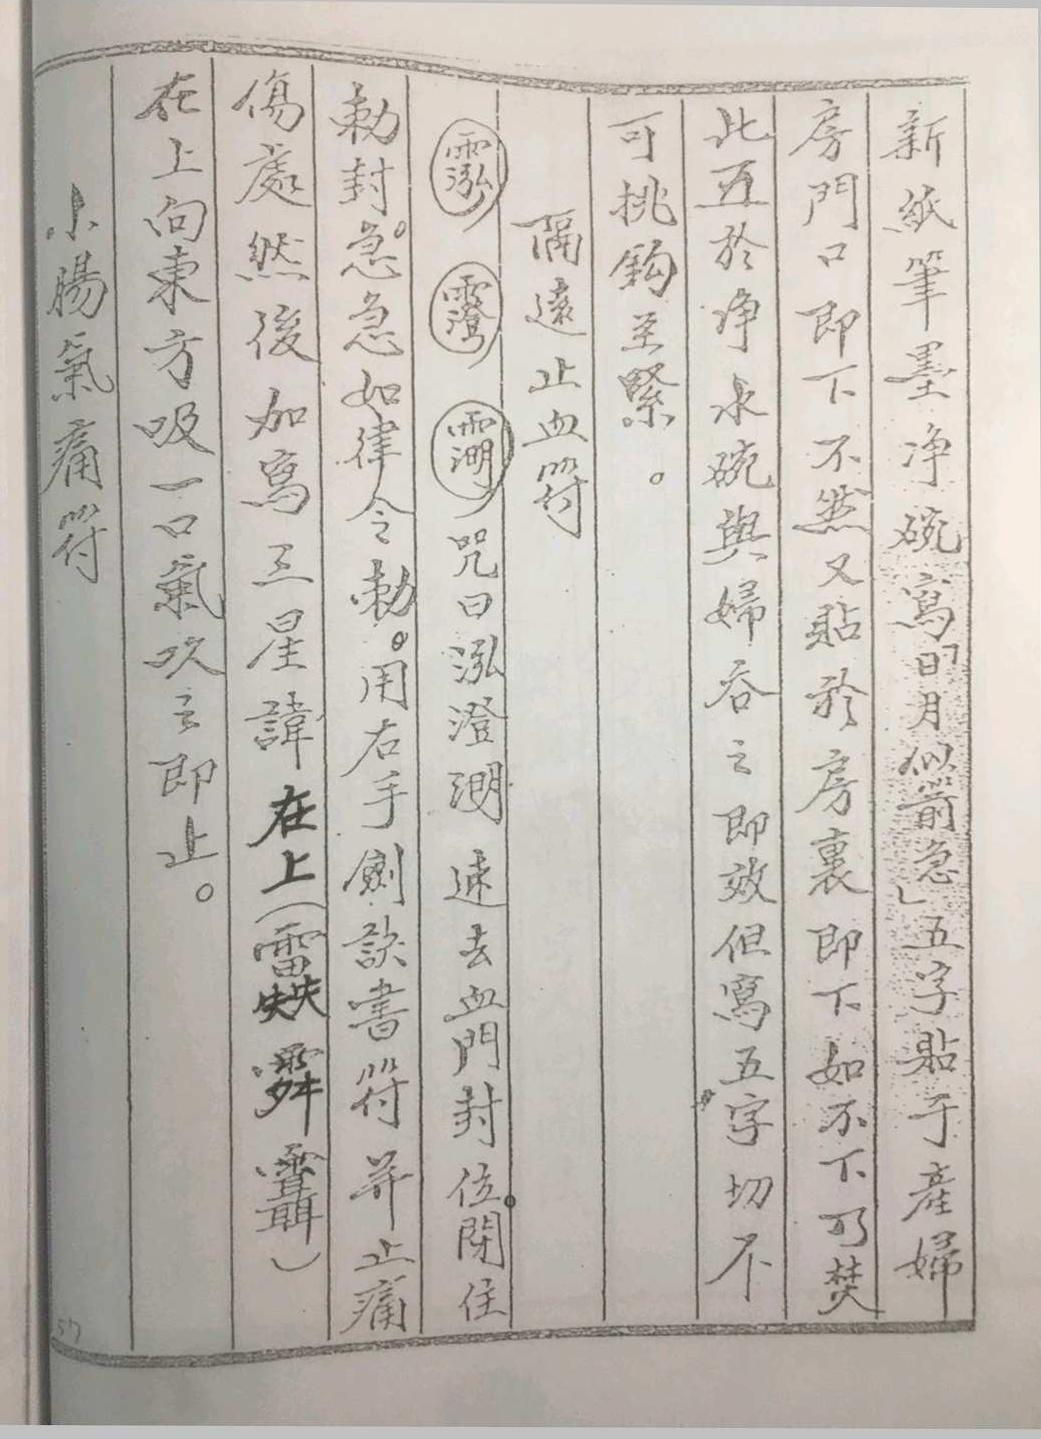 新紙筆墨净碗寫「日月似箭急」五字貼于產婦
房門口即下不然又貼於房裏即下如不下可焚
此五於净水碗與婦吞之即效但寫五字切不
可挑鈎至緊。
隔遠止血符
咒曰泓澄渊速去血門封位。閉住
勅封。急急如律令勅。用右手劍訣書符并止痛
傷處然後加寫三星諱在上（
在上向東方吸一口氣吹之即止。
小腸氣痛符
57